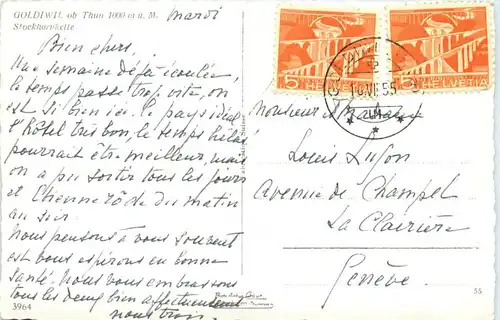 GOLDIWIL ob Thun 1000 m ü. M.
Stockhornkette
mardi
Bien chers,
Une semaine déjà écoulée,
le temps passe trop vite, on
est si bien ici. Le pays idéal
l'hôtel très bon, le temps hélas
pourrait être meilleur, mais
on a pu sortir tous les jours
et Etienne rôde du matin
au soir.
Nous pensons à vous souvent
et vous espérons en bonne
santé. Nous vous embrassons
tous les deux bien affectueusement
nous trois.
3964
15 HELVETIA
15 HELVETIA
10.VII.55
Monsieur et Madame
Louis
Avenue de Champel
La Clairière
Genève.
55